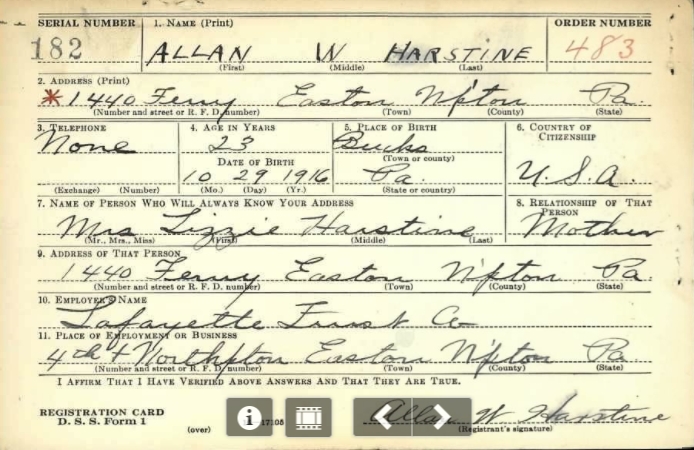 SERIAL NUMBER 1. NAME (Print) ORDER NUMBER
182 ALLAN W HARSTINE 483
(First) (Middle) (Last)
2. ADDRESS (Print)
*1440 Ferry Easton N'pton Pa.
(Number and street or R. F. D. number) (Town) (County) (State)
3. TELEPHONE 4. AGE IN YEARS 5. PLACE OF BIRTH 6. COUNTRY OF
CITIZENSHIP
None 23 Bucks
(Town or county)
DATE OF BIRTH
10 29 1916 Pa. U.S.A.
(Exchange) (Number) (Mo.) (Day) (Yr.) (State or country)
7. NAME OF PERSON WHO WILL ALWAYS KNOW YOUR ADDRESS 8. RELATIONSHIP OF THAT
PERSON
Mrs Lizzie Harstine Mother
(Mr., Mrs., Miss) (First) (Middle) (Last)
9. ADDRESS OF THAT PERSON
1440 Ferry Easton N'pton Pa.
(Number and street or R. F. D. number) (Town) (County) (State)
10. EMPLOYER'S NAME
Lafayette Trust Co
11. PLACE OF EMPLOYMENT OR BUSINESS
4th & Northpton Easton N'pton Pa.
(Number and street or R. F. D. number) (Town) (County) (State)
I AFFIRM THAT I HAVE VERIFIED ABOVE ANSWERS AND THAT THEY ARE TRUE.
REGISTRATION CARD
D. S. S. Form 1 (over) 17105 Allan W Harstine
(Registrant's signature)